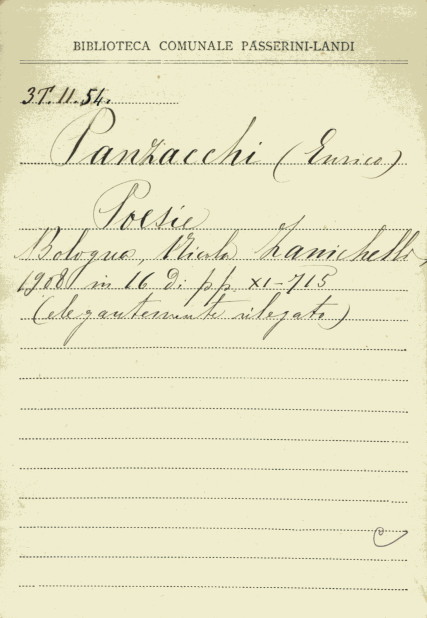 BIBLIOTECA COMUNALE PASSERINI-LANDI
3T.II.54.
Panzacchi (Enrico)
Poesie
Bologna, Nicola Zanichelli,
1908 in 16 di pp. XI-715
(elegantemente rilegato)